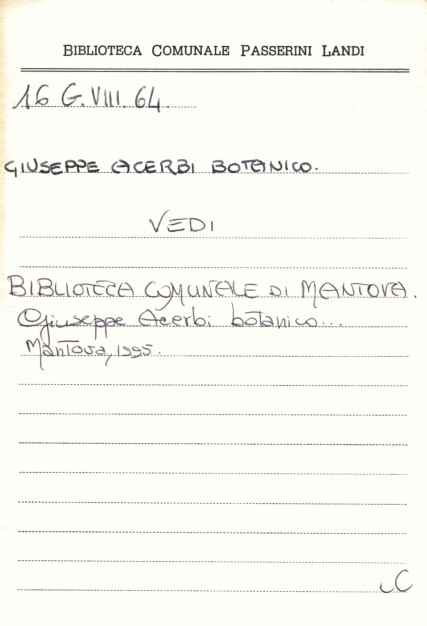 BIBLIOTECA COMUNALE PASSERINI LANDI
16 G.VIII.64
GIUSEPPE ACERBI BOTANICO.
VEDI
BIBLIOTECA COMUNALE DI MANTOVA.
Giuseppe Acerbi botanico...
Mantova, 1995.